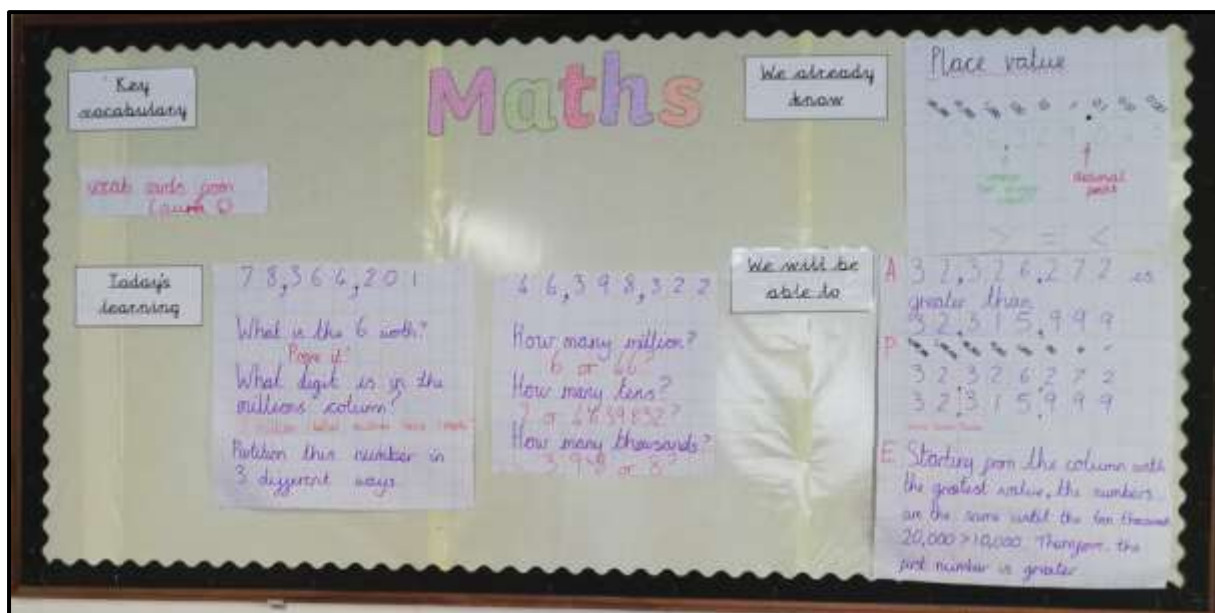 Maths
Key
vocabulary
vocab cards from
We already
know
Place value
decimal
point
> = <
Today's
learning
78,364,201
What is the 6 worth?
Prove it!
What digit is in the
millions column?
Partition this number in
3 different ways
46,398,322
How many million?
6 or 46
How many tens?
How many thousands?
398 or 8?
We will be
able to
A 32,326,272 is
greater than
32,315,999
P
32,326,272
32,315,999
E Starting from the column with
the greatest value, the numbers
are the same until the ten thousand
20,000 > 10,000. Therefore the
first number is greater